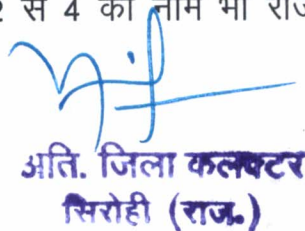 से 4 का नाम भी
अति. जिला कलक्टर
सिरोही (राज.)